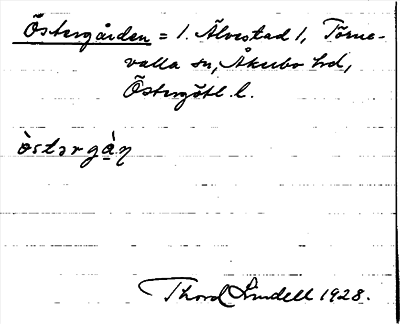 Östergården = 1. Älvestad 1, Törne-
valla sn, Åkerbo hd,
Östergötl. l.
östərgà̱n
Thord Lindell 1928.